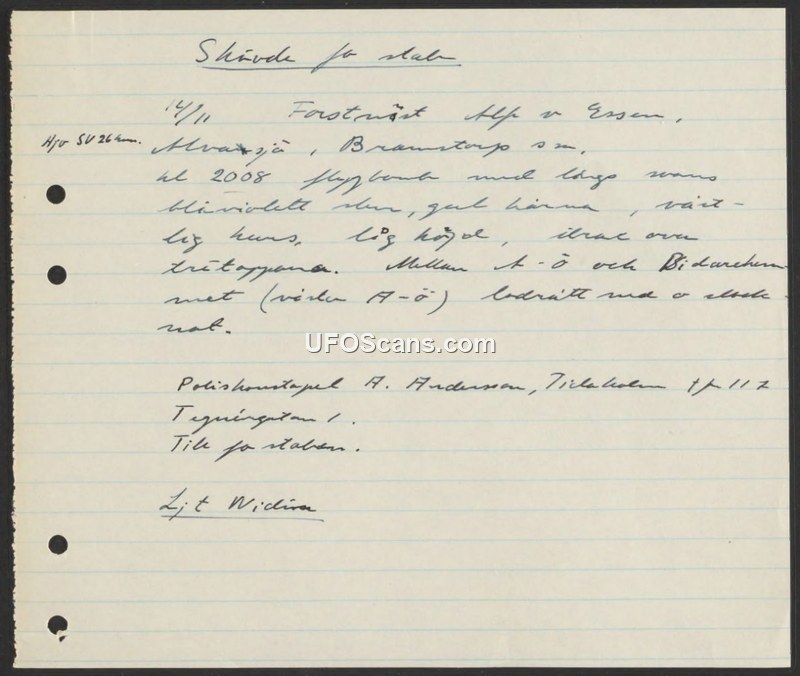 Skövde fo stab
14/11 Forstmäst Alf v Essen,
Hjo SV 26 km.
sjö, Brandstorps sn,
kl 2008 flygbomb med lång svans
blåviolett sken, gul kärna, väst-
lig kurs, låg höjd, strax över
trätopparna. Mellan A-ö och
met (väster A-ö) lodrätt ned o slock-
nat.
UFOScans.com
Poliskonstapel A. Andersson, Tidaholm
Tegnérgatan 1.
Till fo staben.
Ljt